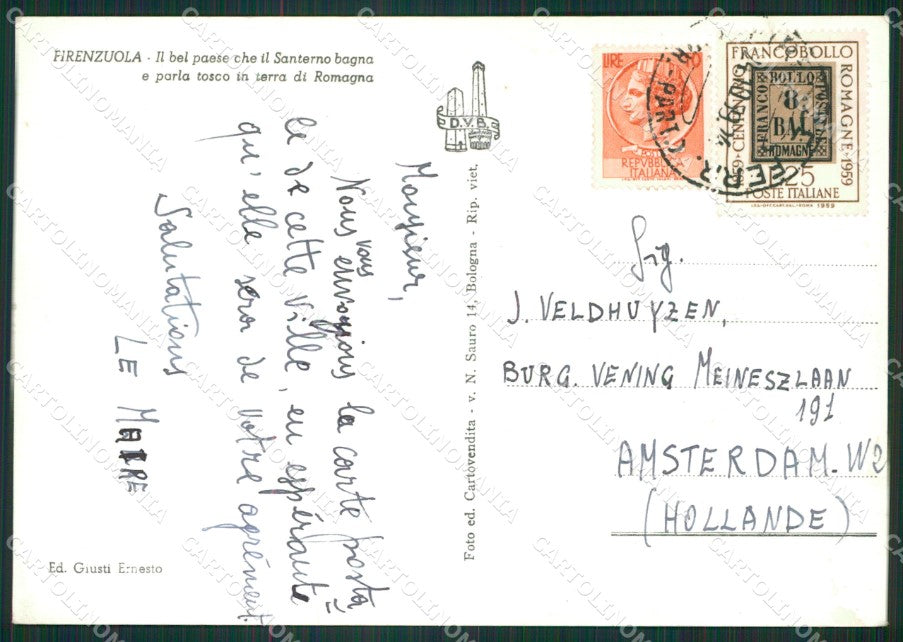 FIRENZUOLA - Il bel paese che il Santerno bagna
e parla tosco in terra di Romagna
D.V.B.
Monsieur,
Nous vous envoyons la carte posta=
le de cette Ville, en espérante
qu'elle sera de votre agrément.
Salutations
LE MAIRE
Ed. Giusti Ernesto
Foto ed. Cartovendita - v. N. Sauro 14, Bologna - Rip. viet.
LIRE
POSTE
REPUBBLICA
ITALIANA
FRANCOBOLLO
ROMAGNE-1959
1859-CENTENARIO
FRANCO
BOLLO
POSTALE
8
BAJ
ROMAGNE
£25
POSTE ITALIANE
1959
FERR.
Sig.
J. VELDHUYZEN,
BURG. VENING MEINESZLAAN
191
AMSTERDAM. W2
(HOLLANDE)
CARTOLINOMANIA